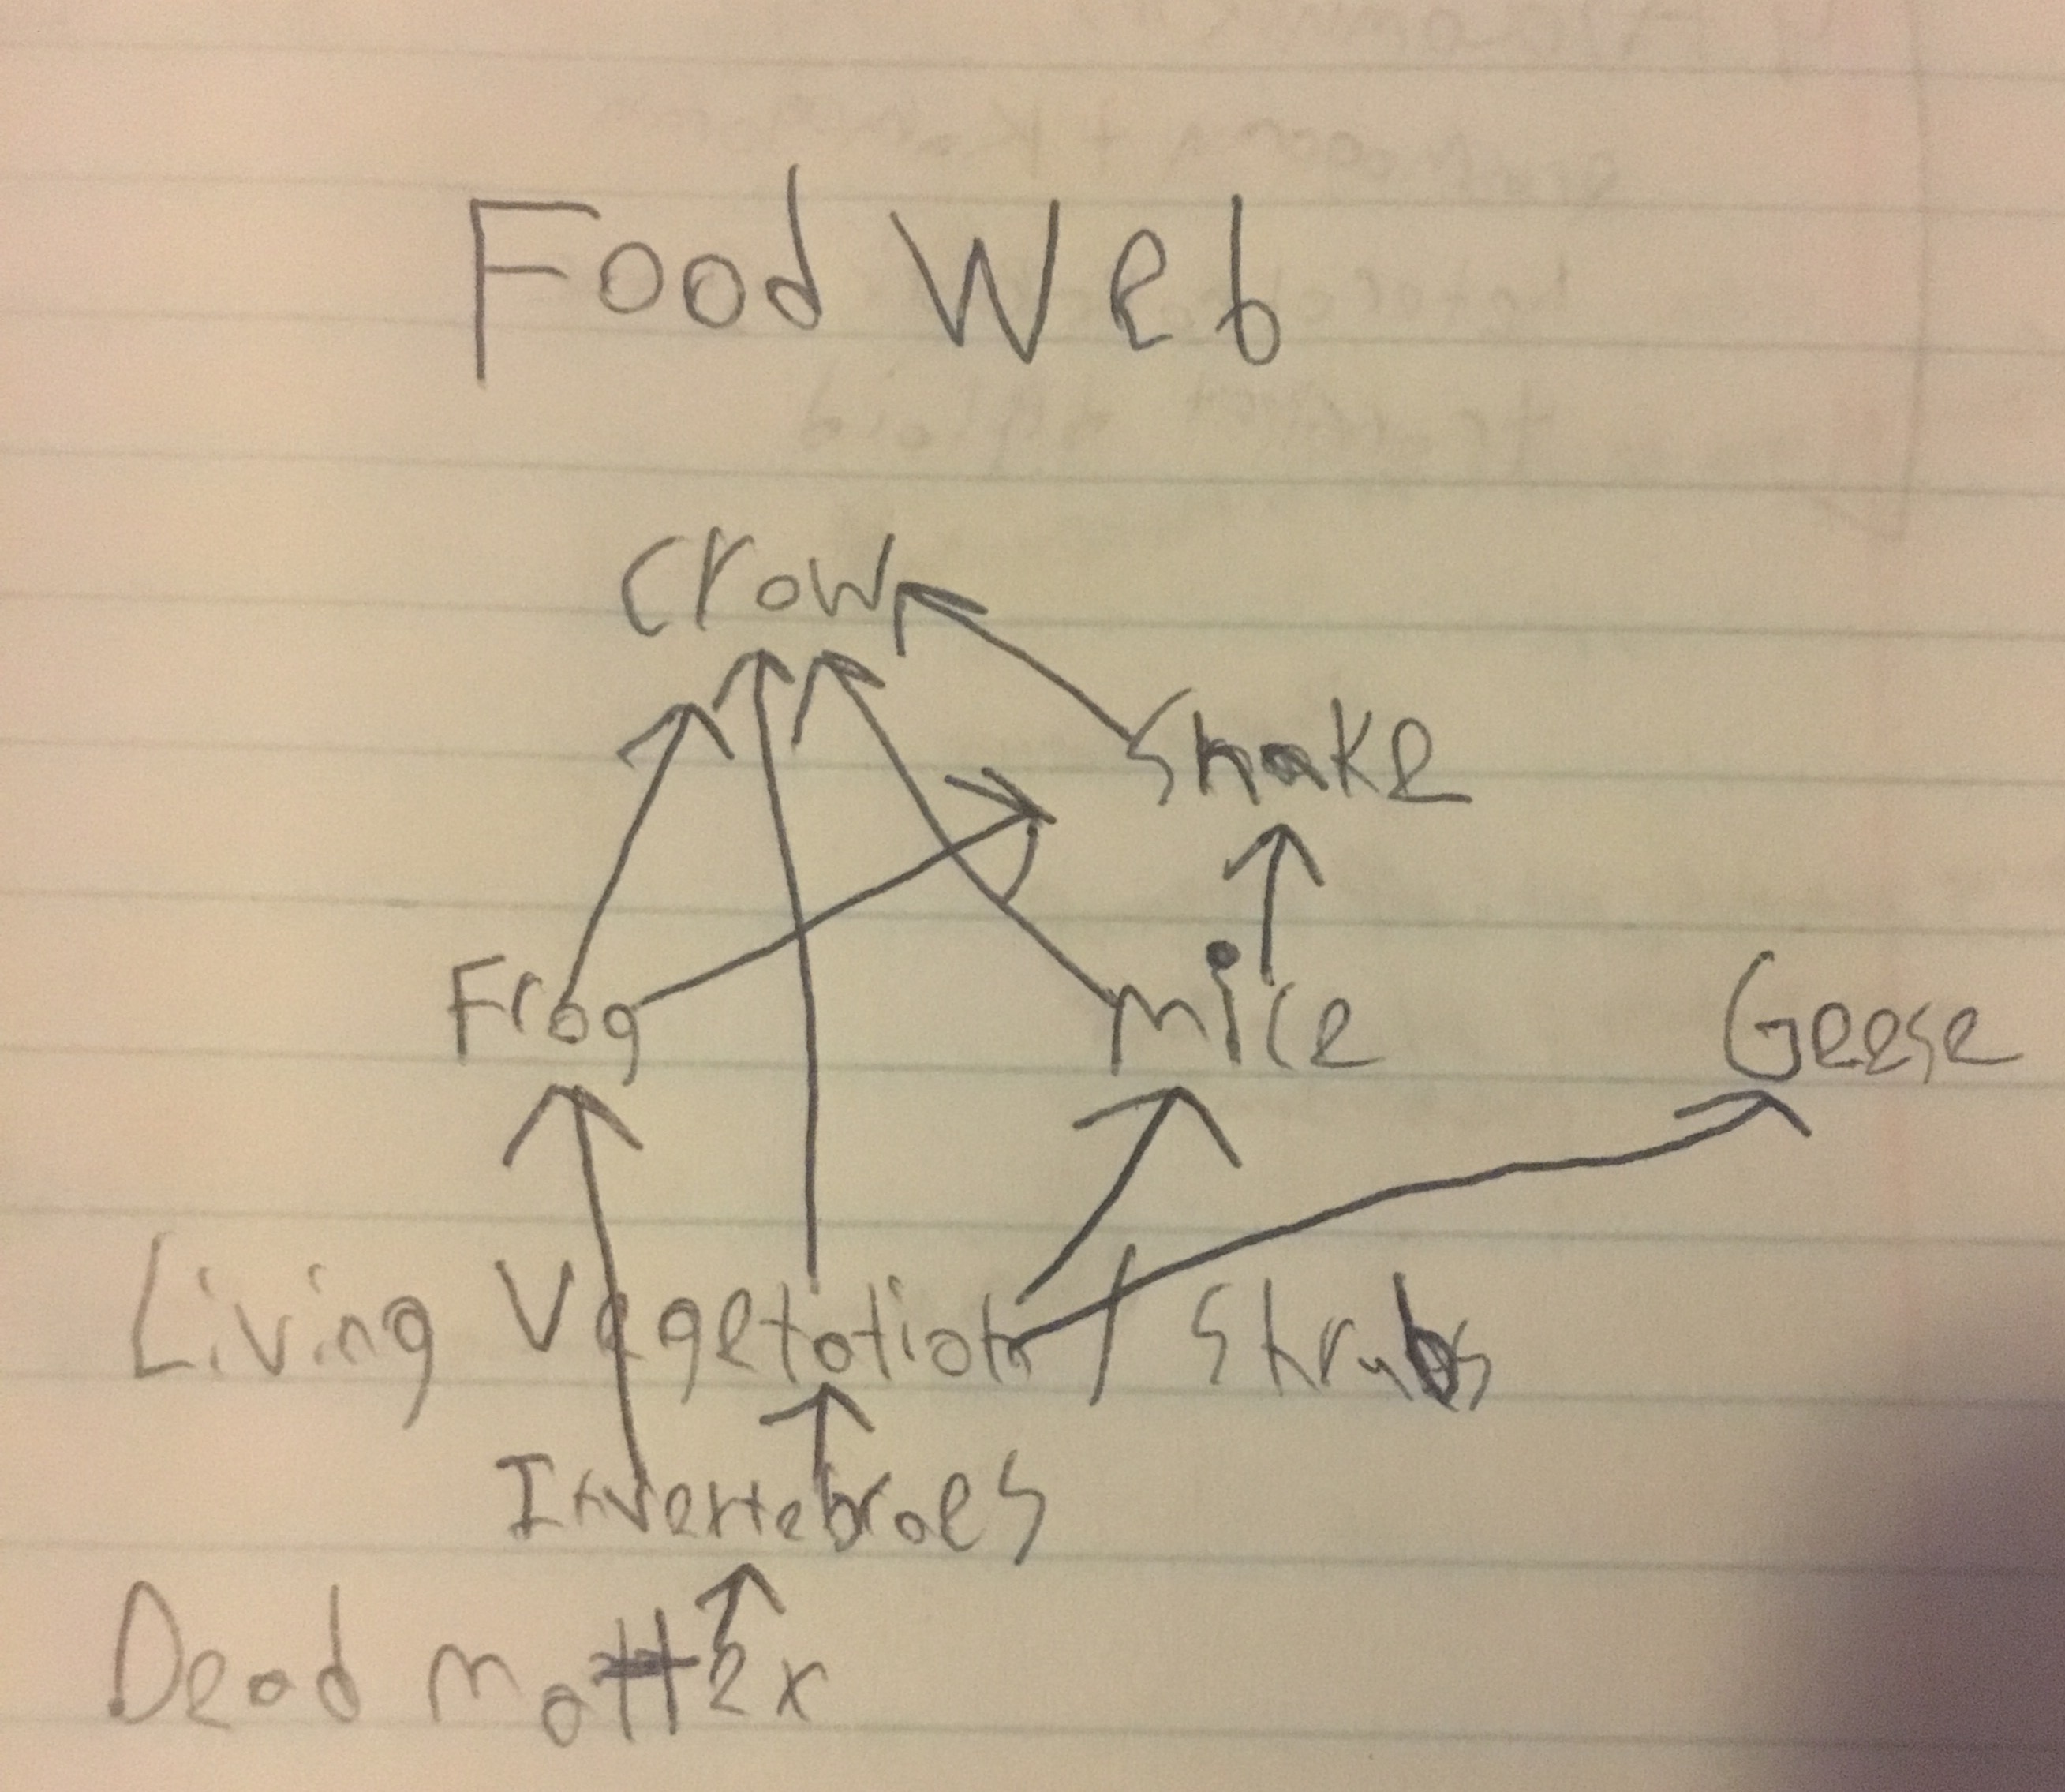 Food Web
Crow
Snake
Frog
mice
Geese
Living Vegetation / Shrubs
Invertebraes
Dead matter